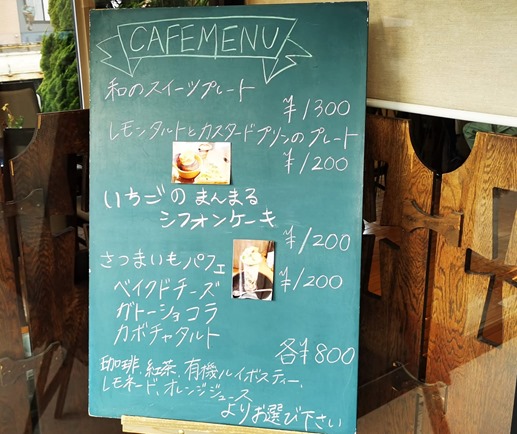 CAFEMENU
和のスイーツプレート
¥1300
レモンタルトとカスタードプリンのプレート
¥1200
いちごの まんまる
シフォンケーキ
¥1200
さつまいもパフェ ¥1200
ベイクドチーズ
ガトーショコラ
カボチャタルト
各¥800
珈琲、紅茶、有機ルイボスティー、
レモネード、オレンジジュース
よりお選び下さい